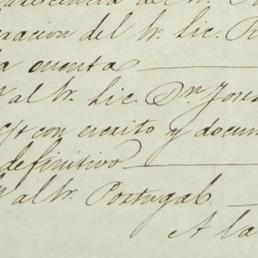 racion del Sr. Lic. R
la cuenta
al Sr. Lic. Dn Jose
con escrito y docum
definitivo
al Sr. Portugal
A la